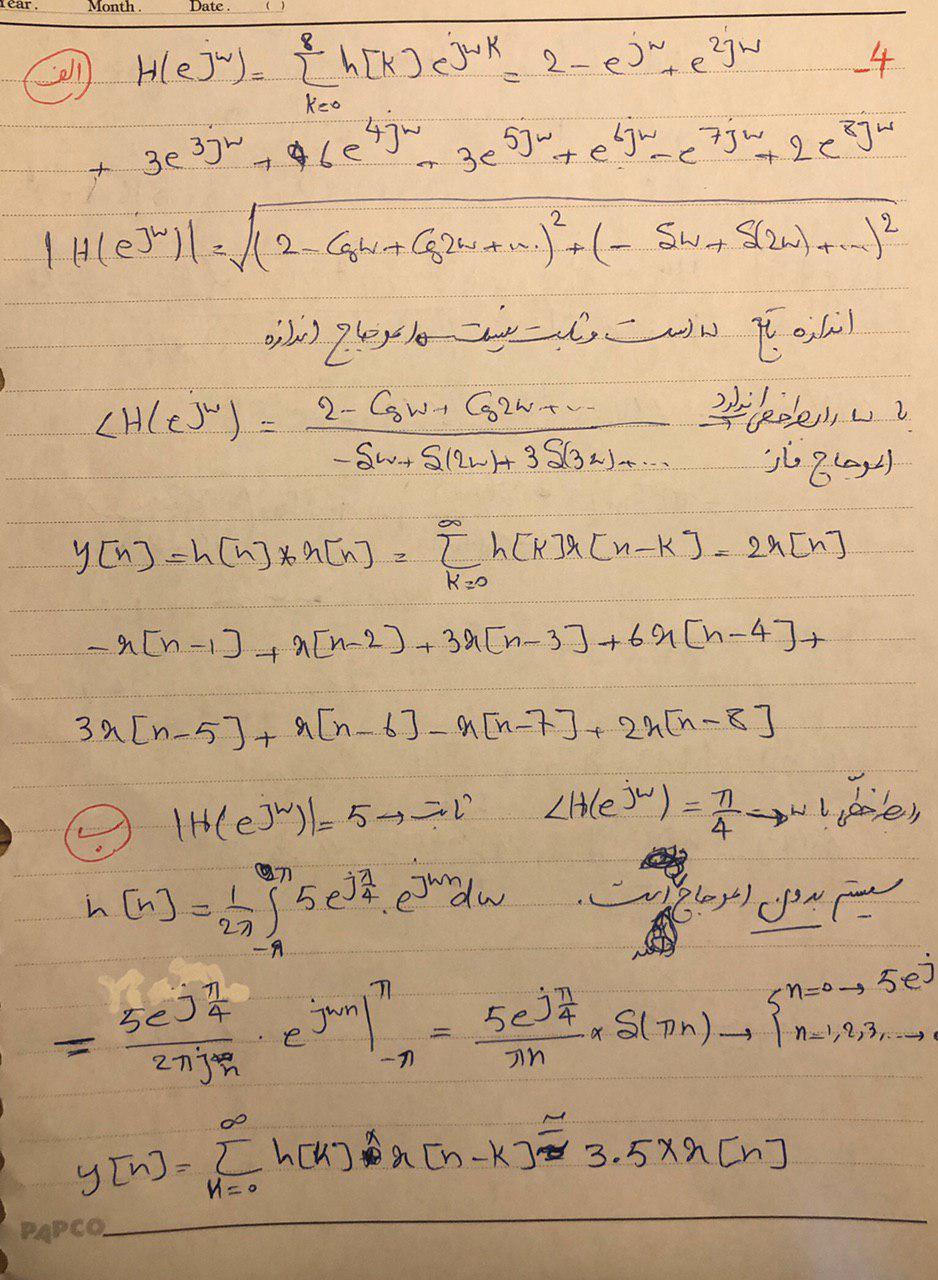 Year. Month. Date. ( )
4- الف H(e^jw) = Σ_{k=0}^{8} h[k] e^jwk = 2 - e^jw + e^2jw
+ 3e^3jw + 6e^4jw + 3e^5jw + e^6jw - e^7jw + 2e^8jw
|H(e^jw)| = √((2 - Cosw + Cos2w + ...)² + (- Sw + S(2w) + ...)²)
اندازه تابع w است و ثابت نیست → اعوجاج اندازه
∠H(e^jw) = (2 - Cosw + Cos2w + ...) / (-Sw + S(2w) + 3S(3w) + ...) با w رابطه خطی ندارد →
اعوجاج فاز
y[n] = h[n] * x[n] = Σ_{k=0}^{∞} h[k] x[n-k] = 2x[n]
- x[n-1] + x[n-2] + 3x[n-3] + 6x[n-4] +
3x[n-5] + x[n-6] - x[n-7] + 2x[n-8]
ب |H(e^jw)| = 5 → ثابت ∠H(e^jw) = π/4 → رابطه خطی با w
h[n] = 1/2π ∫_{-π}^{π} 5e^{jπ/4} . e^{jwn} dw سیستم بدون اعوجاج است.
= 5e^{jπ/4} / 2πjn . e^{jwn} |_{-π}^{π} = 5e^{jπ/4} / πn × S(πn) → { n=0 → 5e^j
n=1,2,3,... →
y[n] = Σ_{k=0}^{∞} h[k] * x[n-k] ≃ 3.5 × x[n]
PAPCO